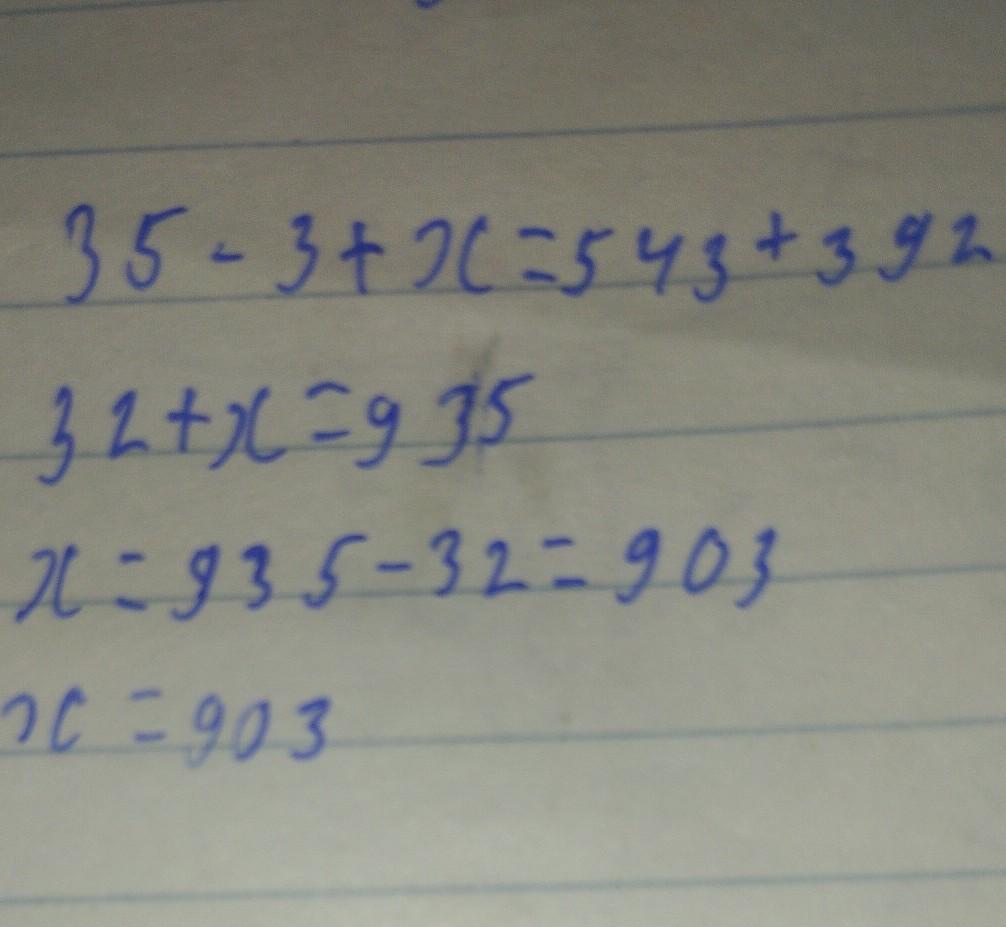 35-3+x=543+392
32+x=935
x=935-32=903
x=903